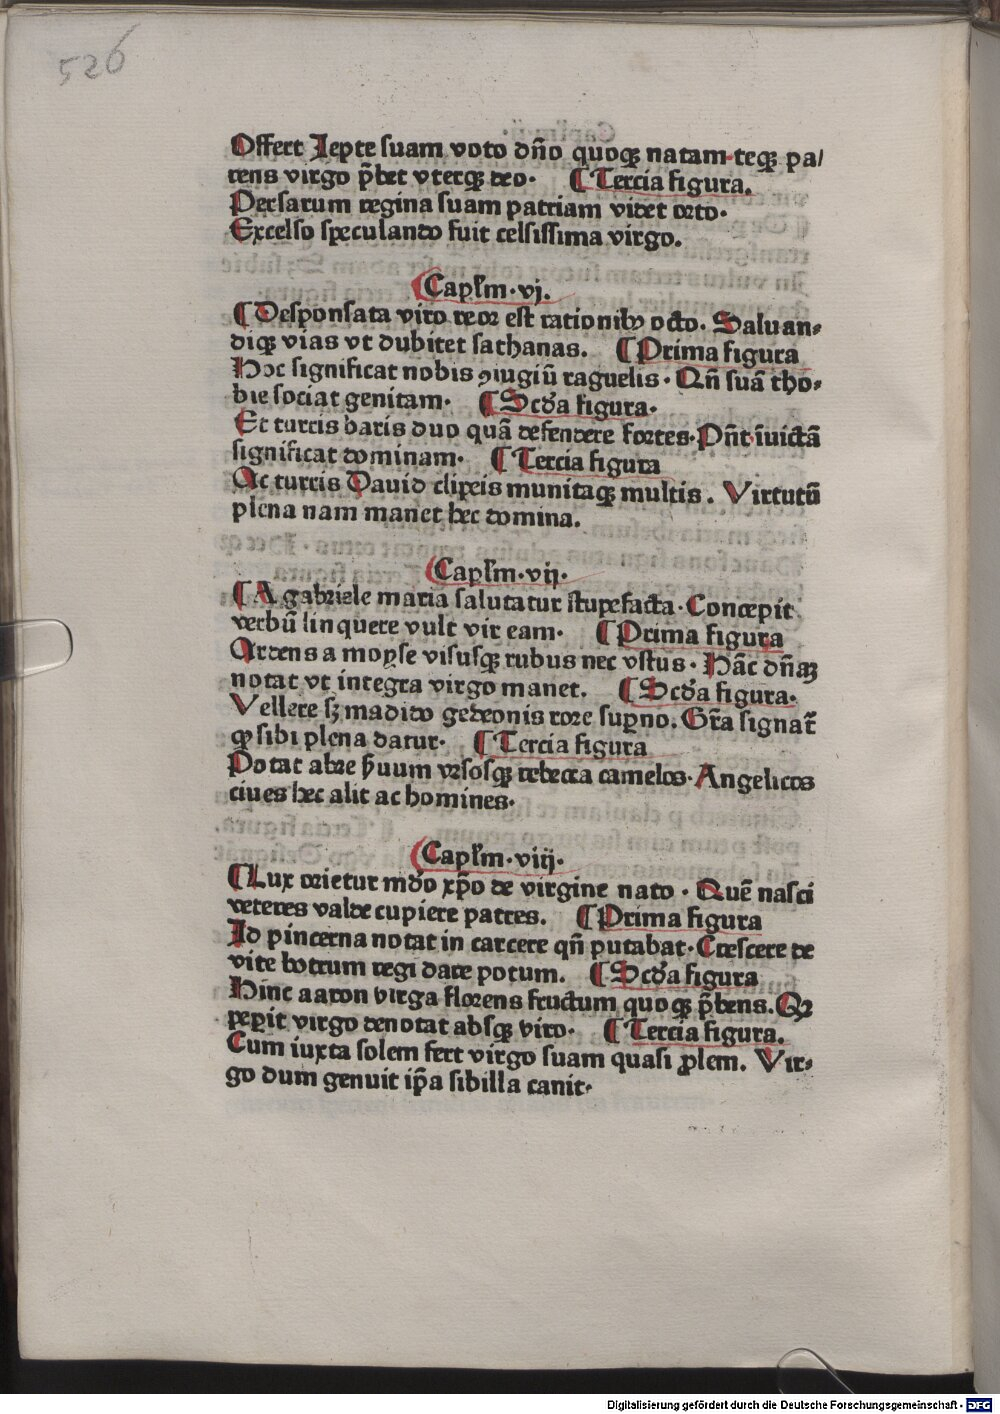 526
Offert Iepte suam voto dn̄o quoqꝫ natam·teqꝫ pa/
rens virgo p̄bet vterqꝫ deo· ¶ Tercia figura.
Persarum regina suam patriam videt orto·
Excelso speculando fuit celsissima virgo.
Capl̄m·vj.
¶ Desponsata viro deo2 est rationibꝰ octo. Saluan-
diqꝫ vias vt dubitet sathanas. ¶ Prima figura
Hoc significat nobis ꝯiugiū raguelis· Qn̄ suā tho-
bie sociat genitam· ¶ Scd̄a figura·
Et turris baris duo quā defendere fortes·Pn̄t īuictā
significat dominam· ¶ Tercia figura
Ac turris Dauid clipeis munitaqꝫ multis. Virtutū
plena nam manet hec domina.
Capl̄m·vij·
¶ A gabriele maria salutatur stupefacta·Concepit
verbū linquere vult vir eam· ¶ Prima figura
Ardens a moyse visusqꝫ rubus nec vstus· Hāc dn̄aꝫ
notat vt integra virgo manet. ¶ Scd̄a figura·
Vellere sꝫ madido gedeonis rore sup̄no. Gr̄a signat᷑
ꝙ sibi plena datur· ¶ Tercia figura
Potat abre ẜuum vrsosqꝫ rebecca camelos· Angelicos
ciues hec alit ac homines·
Capl̄m·viij·
¶ Lux orietur mdo xp̄o de virgine nato · Quē nasci
veteres valde cupiere patres. ¶ Prima figura
Id pincerna notat in carcere qn̄ putabat·Crescere de
vite botrum regi dare potum. ¶ Scd̄a figura
Hinc aaron virga florens fructum quoqꝫ p̄bens. Qꝫ
peperit virgo denotat absqꝫ viro· ¶ Tercia figura.
Cum iuxta solem fert virgo suam quasi ꝓlem. Vir-
go dum genuit ip̄a sibilla canit·
Digitalisierung gefördert durch die Deutsche Forschungsgemeinschaft · DFG